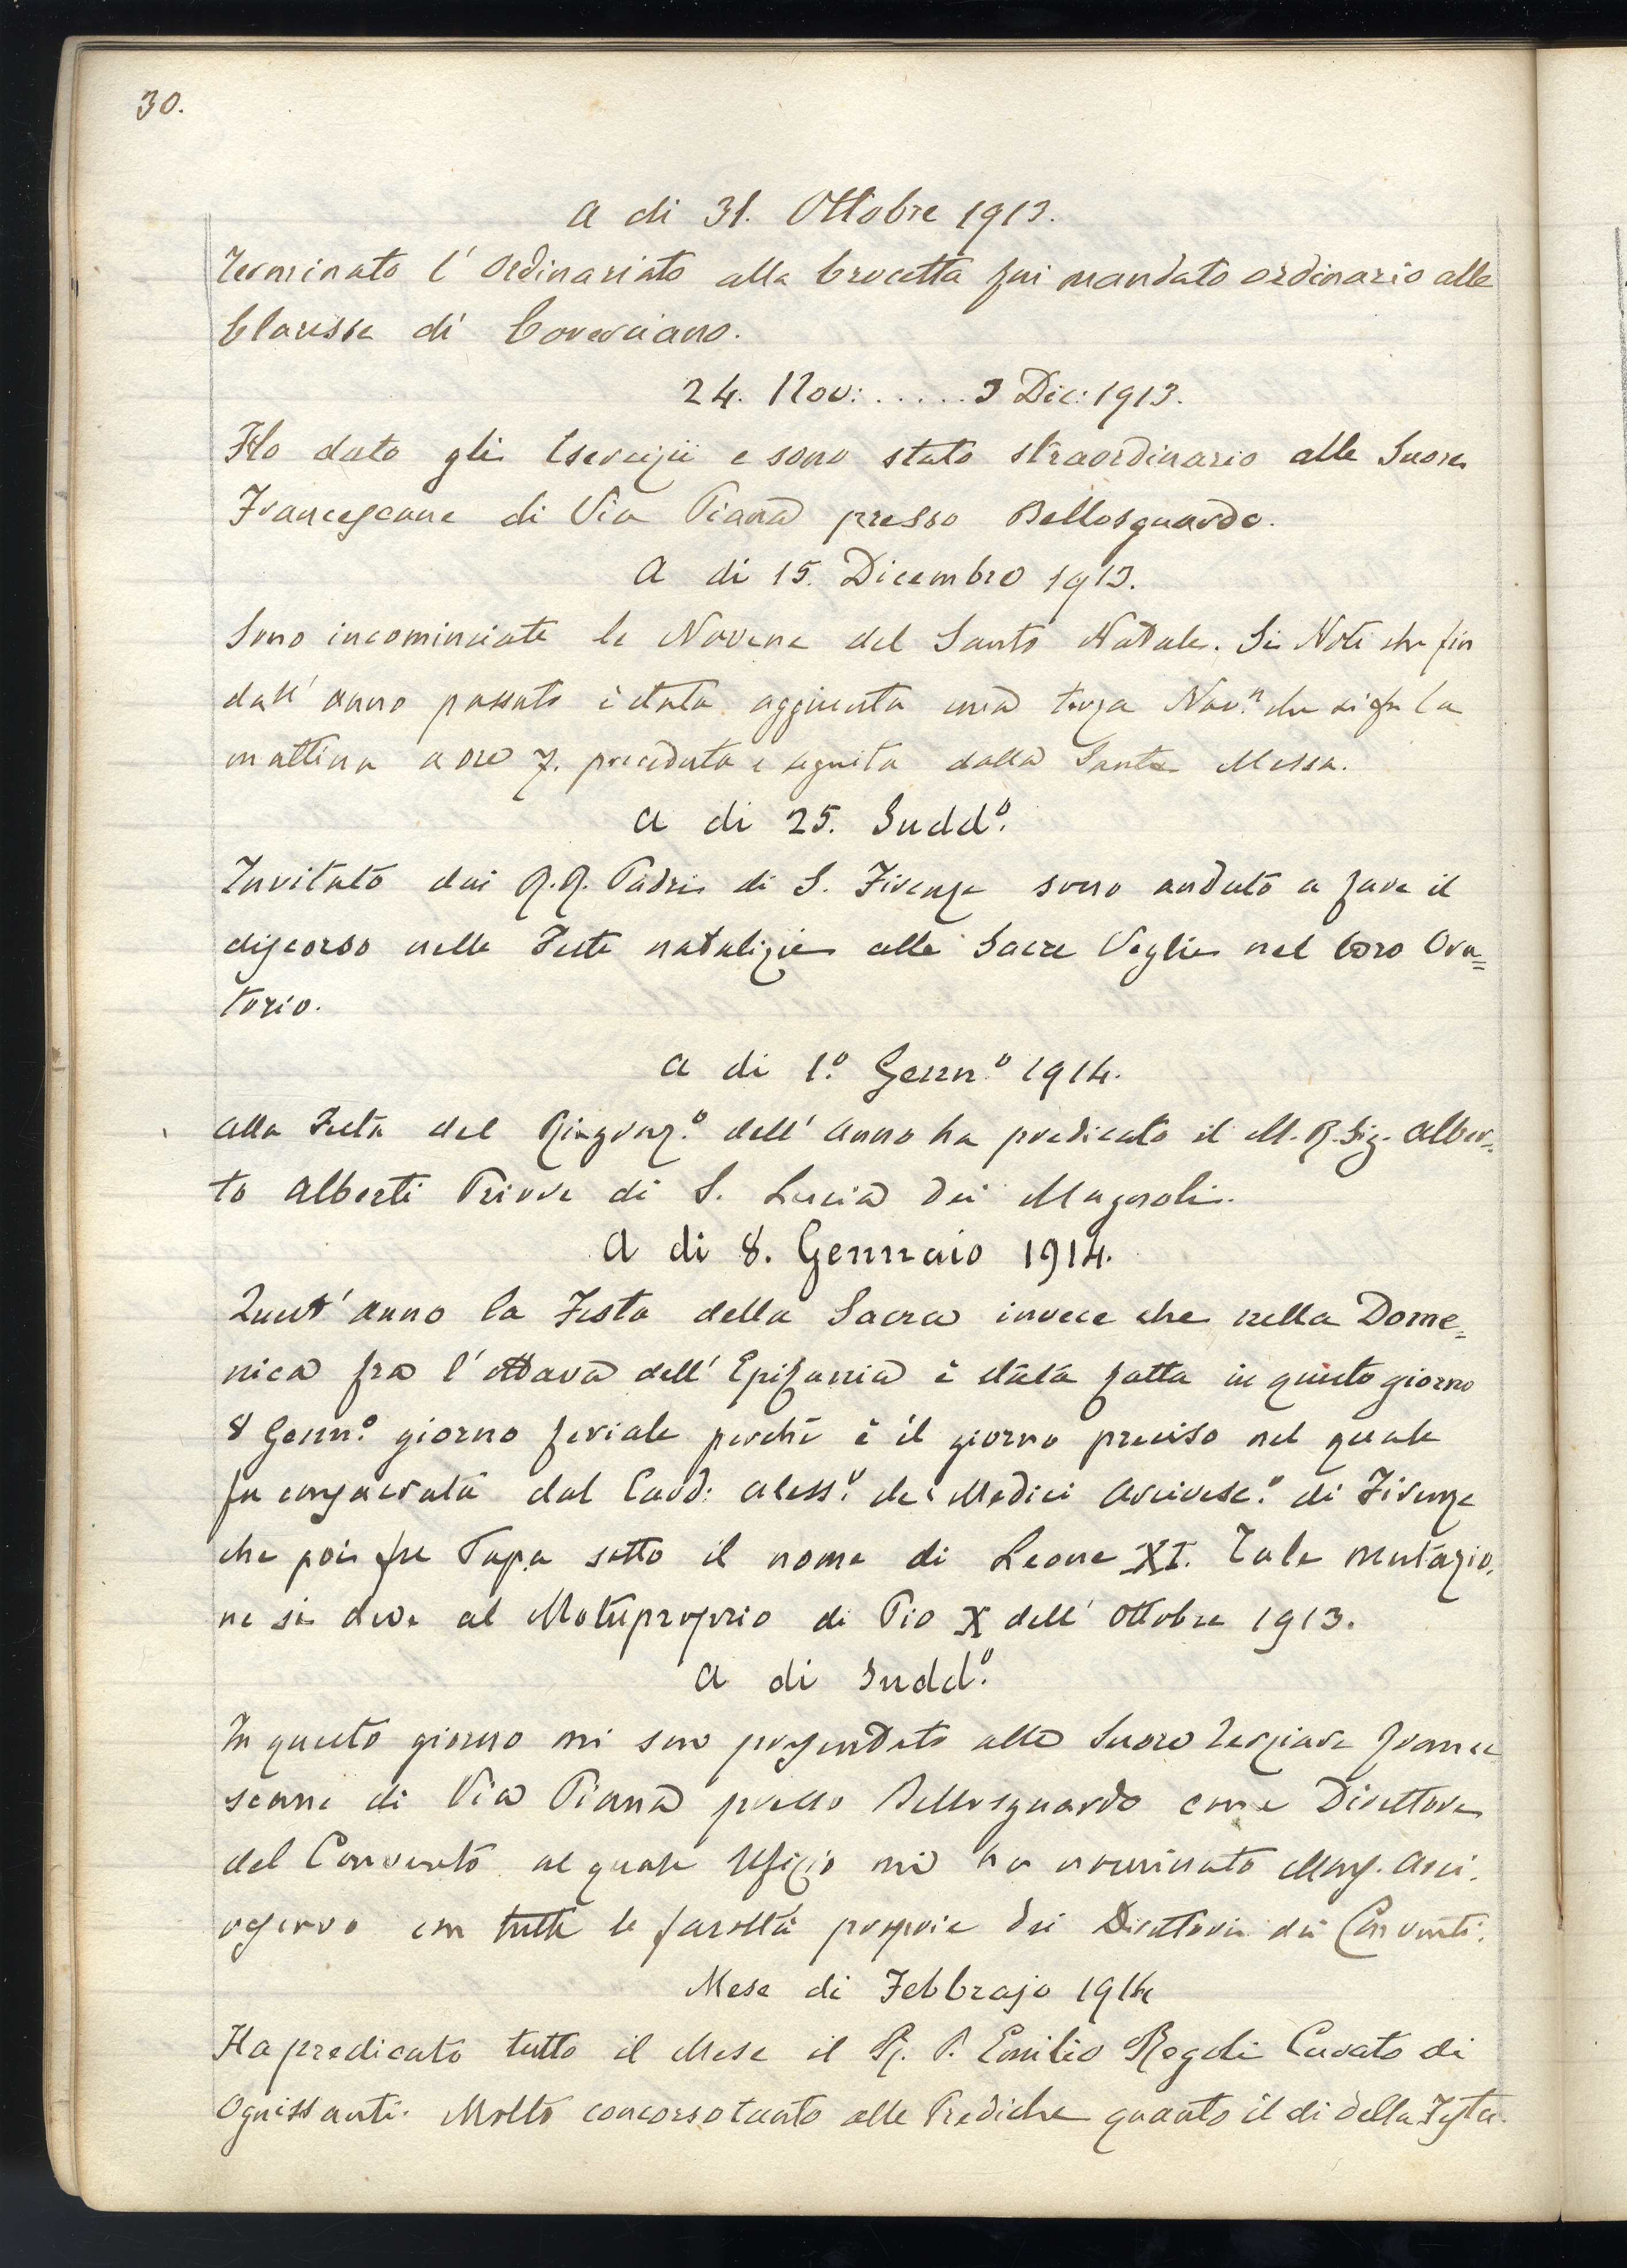 30.
A di 31. Ottobre 1913.
Terminato l'Ordinariato alla Crocetta fui mandato ordinario alle
Clarisse di Coverciano.
24. Nov: ..... 3 Dic: 1913.
Ho dato gli Esercizii e sono stato straordinario alle Suore
Francescane di Via Piana presso Bellosguardo.
A di 15. Dicembre 1913.
Sono incominciate le Novene del Santo Natale. Si Noti che fin
dall'anno passato è stata aggiunta una terza Nov.n che si fa la
mattina a ore 7. preceduta e seguita dalla Santa Messa.
A di 25. Sudd.o
Invitato dai R.R. Padri di S. Firenze sono andato a fare il
discorso nelle Feste natalizie alle Sacre Veglie nel loro Ora=
torio.
A di 1.o Genn.o 1914.
Alla Festa del Ringraz.o dell'Anno ha predicato il M.R. Sig. Alber=
to Alberti Priore di S. Lucia dei Magnoli.
A di 8. Gennaio 1914.
Quest'anno la Festa della Sacra invece che nella Dome=
nica fra l'ottava dell'Epifania è stata fatta in questo giorno
8 Genn.o giorno feriale perchè è il giorno preciso nel quale
fu consacrata dal Card: Aless.o de' Medici Arcivesc.o di Firenze
che poi fu Papa sotto il nome di Leone XI. Tale mutazio=
ne si deve al Motuproprio di Pio X dell'Ottobre 1913.
A di Sudd.o
In questo giorno mi sono presentato alle Suore Terziare France
scane di Via Piana presso Bellosguardo come Direttore
del Convento al quale Ufizio mi ha nominato Mons. Arci.
vescovo con tutte le facoltà proprie dei Direttori dei Conventi.
Mese di Febbrajo 1914
Ha predicato tutto il Mese il R. P. Emilio Regoli Curato di
Ognissanti. Molto concorso tanto alle Prediche quanto il di della Festa.